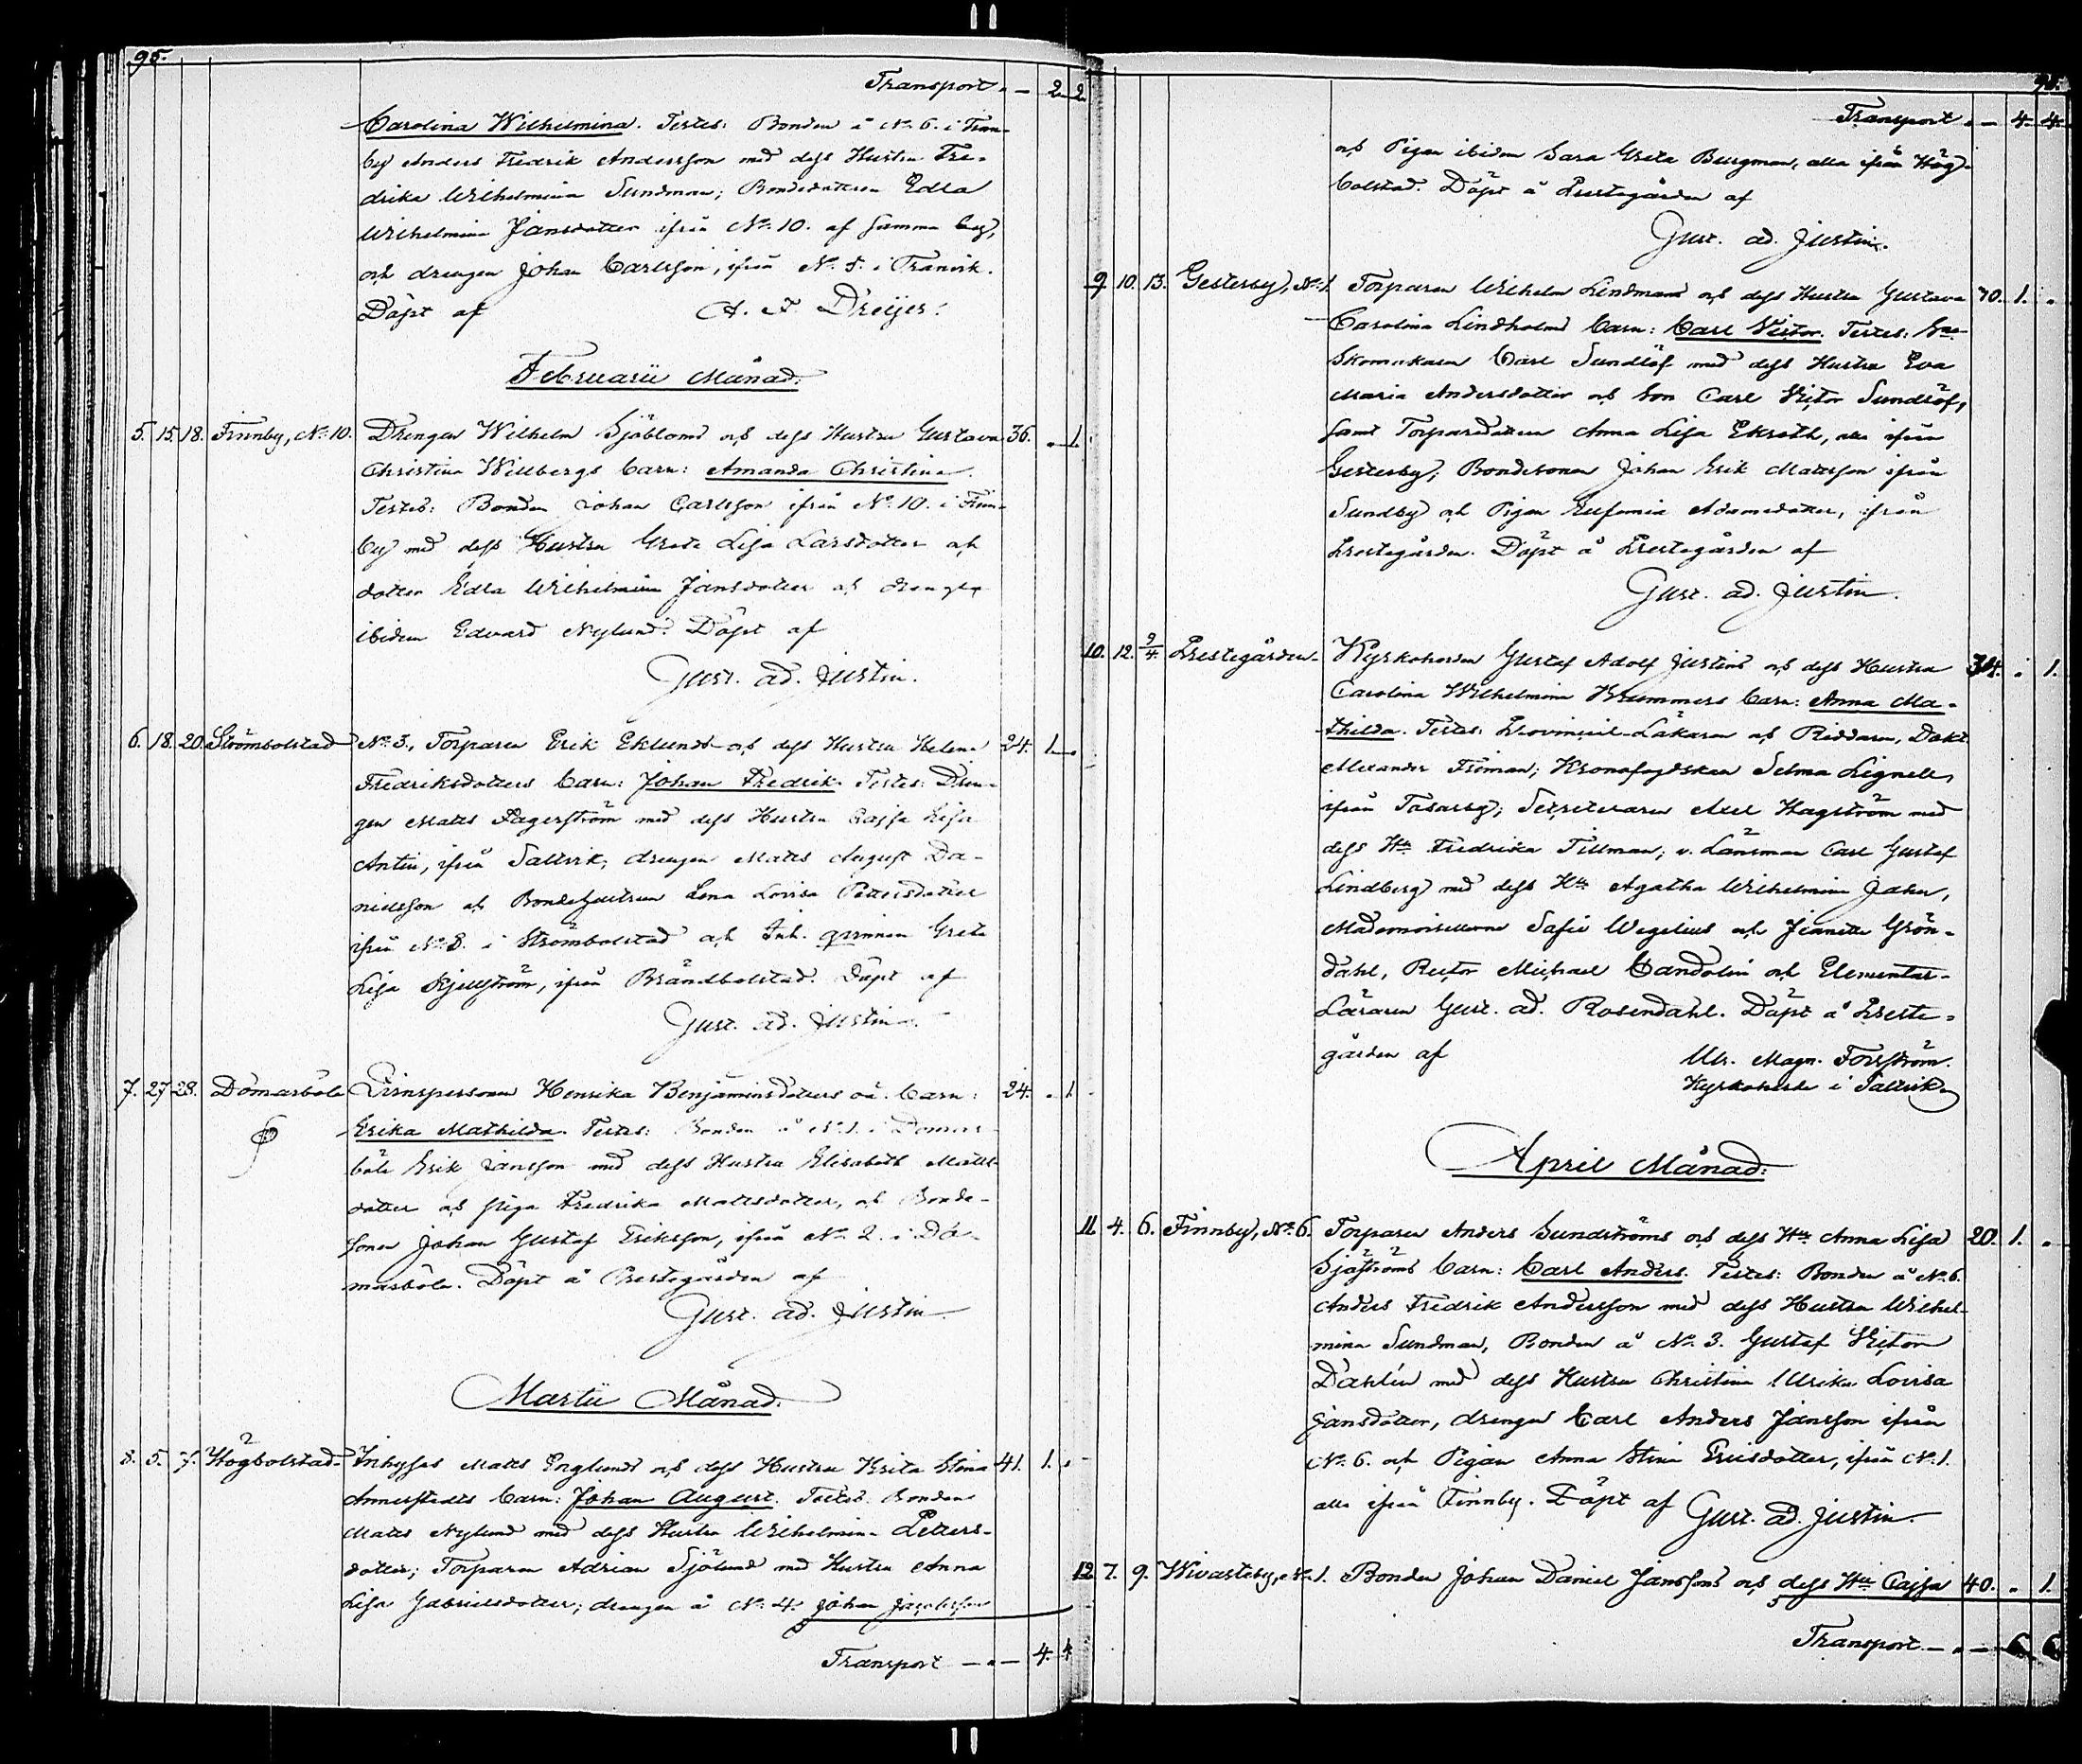 95.
Transport - 2. 2.
Carolina Wilhelmina. Testes: Bonden å No. 6. i Tran-
by Anders Fredrik Andersson med dess Hustru Fre-
drika Wilhelmina Sundman; Bondedottren Edla
Wilhelmina Jansdotter ifrån No. 10. af samma by,
och drengen Johan Carlsson, ifrån No. 8. i Tranvik.
Döpt af A. F. Dreijer.
Februarii Månad.
5. 15. 18. Finnby, No. 10. Drengen Wilhelm Sjöbloms och dess Hustru Gustava 36. . 1.
Christina Willbergs barn: Amanda Christina.
Testes: Bonden Johan Carlsson ifrån No. 10. i Finn-
by med dess Hustru Greta Lisa Larsdotter och
dotter Edla Wilhelmina Jansdotter och drengen
ibidem Edvard Nylund. Döpt af
Gust. ad. Justin.
6. 18. 20. Strömbolstad No. 3., Torparen Erik Eklunds och dess Hustru Helena 24. 1. .
Fredriksdotters barn: Johan Fredrik. Testes: Dren-
gen Matts Fagerström med dess Hustru Cajsa Lisa
Antin, ifrån Saltvik; drengen Matts August Da-
nielsson och Bondehustrun Lena Lovisa Pettersdotter
ifrån No. 8. i Strömbolstad och Inh. qvinnan Greta
Lisa Kjellström, ifrån Brändbolstad. Döpt af
Gust. ad. Justin.
7. 27. 28. Domarböle Qvinspersonen Henrika Benjaminsdotters oä. barn: 24. . 1.
Erika Mathilda. Testes: Bonden å No. 1. i Domar-
böle Erik Jansson med dess Hustru Elisabeth Matts-
dotter och piga Fredrika Mattsdotter, och Bonde-
sonen Johan Gustaf Eriksson, ifrån No. 2. i Do-
marböle. Döpt å Prestegården af
Gust. ad. Justin.
Martii Månad.
8. 5. 7. Högbolstad. Inhyses Matts Englunds och dess Hustru Brita Stina 41. 1. .
Annerstedts barn: Johan August. Testes: Bonden
Matts Nylund med dess Hustru Wilhelmina Petters-
dotter; Torparen Adrian Sjölund med Hustru Anna
Lisa Gabrielsdotter; drengen å No. 4. Johan Jacobsson
Transport - . - 4. 4.
Transport . - 4. 4.
och Pigan ibidem Sara Greta Burgman, alla ifrån Hög-
bolstad. Döpt å Prestegården af
Gust. ad. Justin.
9. 10. 13. Gesterby, No. 1. Torparen Wilhelm Lindmans och dess Hustru Gustava 30. 1. .
Carolina Lindholms barn: Carl Victor. Testes:
Skomakaren Carl Sundlöf med dess Hustru Eva
Maria Andersdotter och son Carl Victor Sundlöf,
samt Torparedottren Anna Lisa Ekroth, alla ifrån
Gesterby; Bondesonen Johan Erik Mattsson ifrån
Sundby och Pigan Eufemia Adamsdotter, ifrån
Prestegården. Döpt å Prestegården af
Gust. ad. Justin.
10. 12. 9/4. Prestegården. Kyrkoherden Gustaf Adolf Justins och dess Hustru 34. . 1.
Carolina Wilhelmina Brummers barn: Anna Ma-
thilda. Testes: Provincial-Läkaren och Riddaren, Dokt.
Alexander Fröman; Kronofogdskan Selma Lignell,
ifrån Tosarby; Secreteraren Axel Hagström med
dess Hu Fredrika Tillman; v. Länsman Carl Gustaf
Lindberg med dess Hu Agatha Wilhelmina
Mademoisellerne Sofie Wegelius och Jeannette Grön-
dahl, Rector Michael Candolin och Elementar-
Läraren Gust. ad. Rosendahl. Döpt å Preste-
gården af Ulr. Magn. Forsström.
Kyrkoherde i Saltvik
April Månad.
11. 4. 6. Finnby, No. 6. Torparen Anders Sundströms och dess Hu Anna Lisa 20. 1. .
Sjöströms barn: Carl Anders. Testes: Bonden å No. 6.
Anders Fredrik Andersson med dess Hustru Wilhel-
mina Sundman, Bonden å No. 3. Gustaf Victor
Dahlén med dess Hustru Christina Ulrika Lovisa
Jansdotter, drengen Carl Anders Jansson ifrån
No. 6. och Pigan Anna Stina Ericsdotter, ifrån No. 1.
alla ifrån Finnby. Döpt af Gust. ad. Justin.
12. 7. 9. Wivasteby, No. 1. Bonden Johan Daniel Janssons och dess Hu Cajsa 40. . 1.
Transport - . - 6. 6.